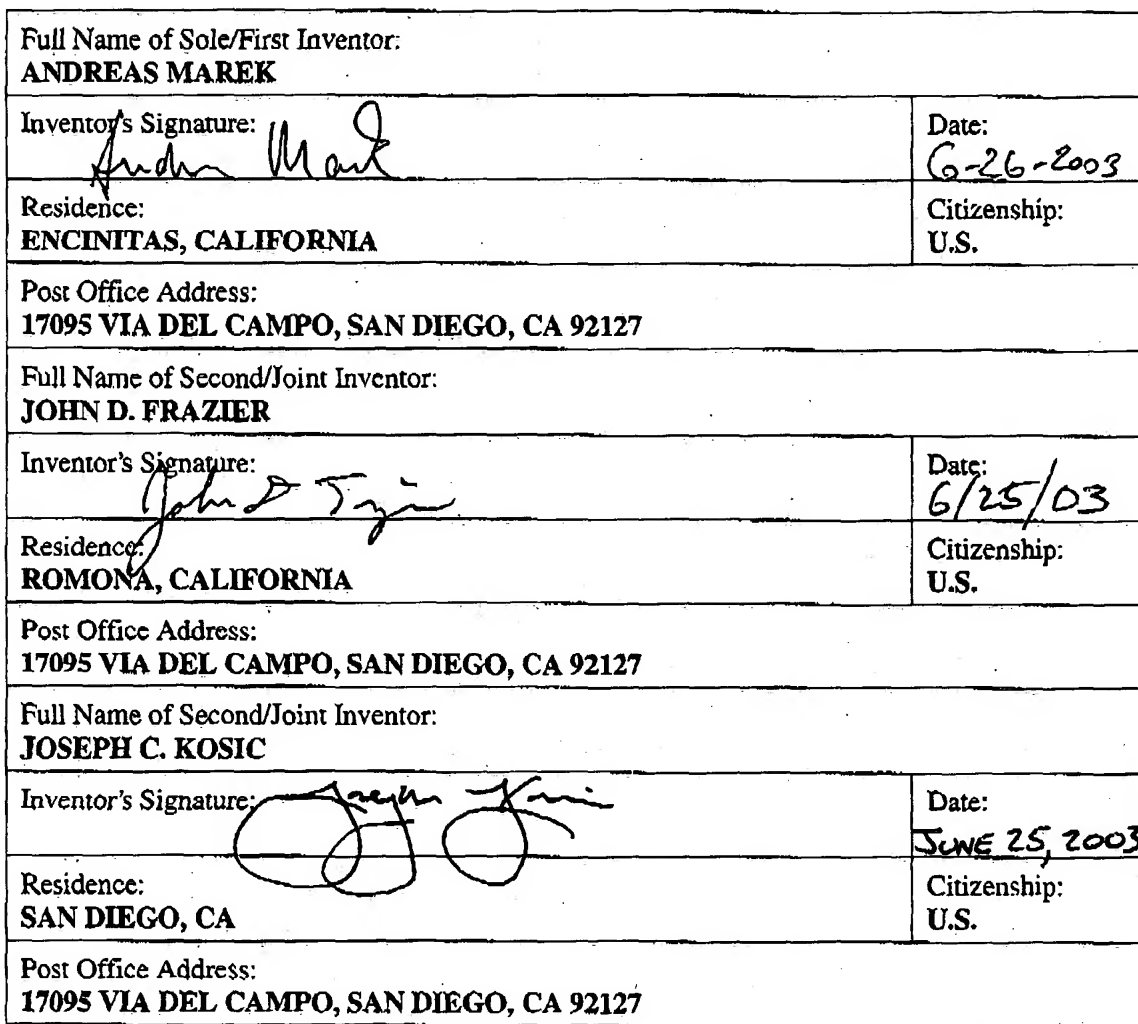 Full Name of Sole/First Inventor:
ANDREAS MAREK
Inventor's Signature:
Date:
6-26-2003
Residence:
ENCINITAS, CALIFORNIA
Citizenship:
U.S.
Post Office Address:
17095 VIA DEL CAMPO, SAN DIEGO, CA 92127
Full Name of Second/Joint Inventor:
JOHN D. FRAZIER
Inventor's Signature:
John D
Date:
6/25/03
Residence:
ROMONA, CALIFORNIA
Citizenship:
U.S.
Post Office Address:
17095 VIA DEL CAMPO, SAN DIEGO, CA 92127
Full Name of Second/Joint Inventor:
JOSEPH C. KOSIC
Inventor's Signature:
Date:
JUNE 25, 2003
Residence:
SAN DIEGO, CA
Citizenship:
U.S.
Post Office Address:
17095 VIA DEL CAMPO, SAN DIEGO, CA 92127